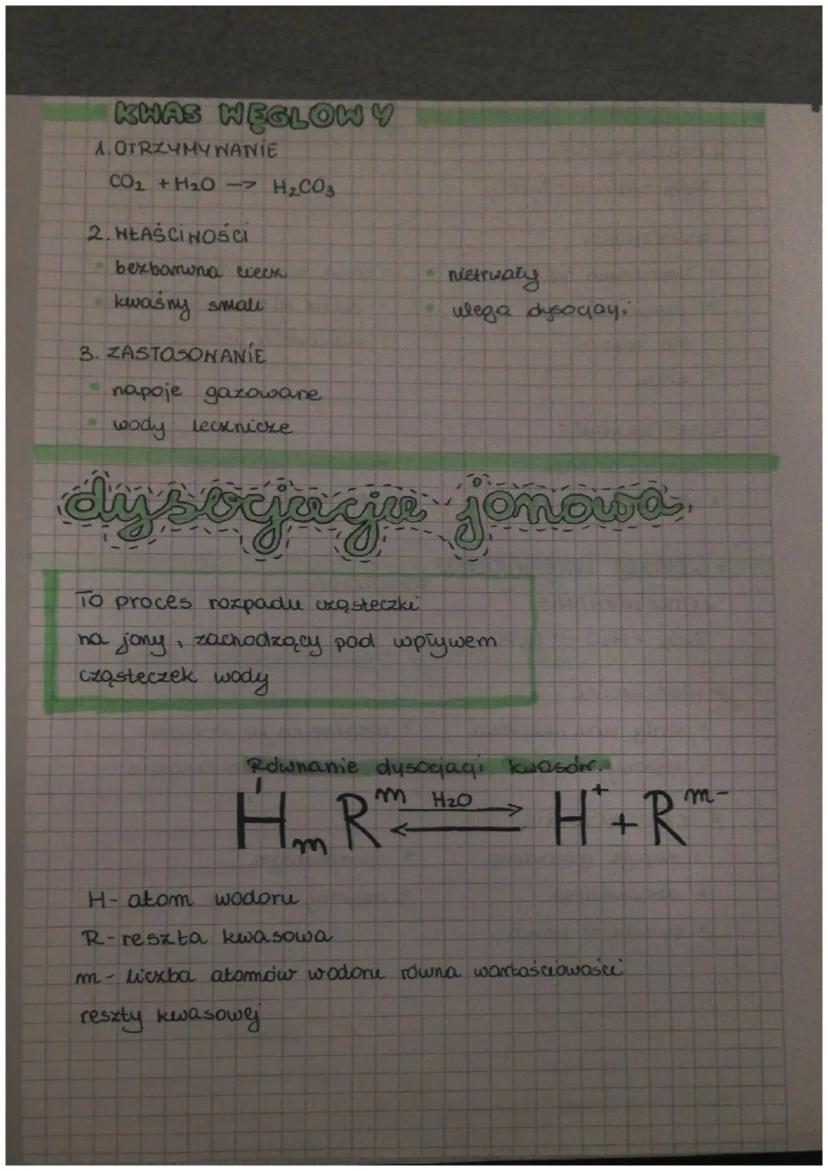 KWAS WĘGLOWY
1. OTRZYMYWANIE
CO₂ + H₂O -> H₂CO₃
2. WŁAŚCIWOŚCI
• bezbarwna ciecz
• nietrwały
• kwaśny smak
• ulega dysocjacji
3. ZASTOSOWANIE
• napoje gazowane
• wody lecznicze
dysocjacja jonowa
To proces rozpadu cząsteczki
na jony, zachodzący pod wpływem
cząsteczek wody
Równanie dysocjacji kwasów.
HₘRᵐ ⇌ H₂O H⁺ + Rᵐ⁻
H - atom wodoru
R - reszta kwasowa
m - liczba atomów wodoru równa wartościowości
reszty kwasowej